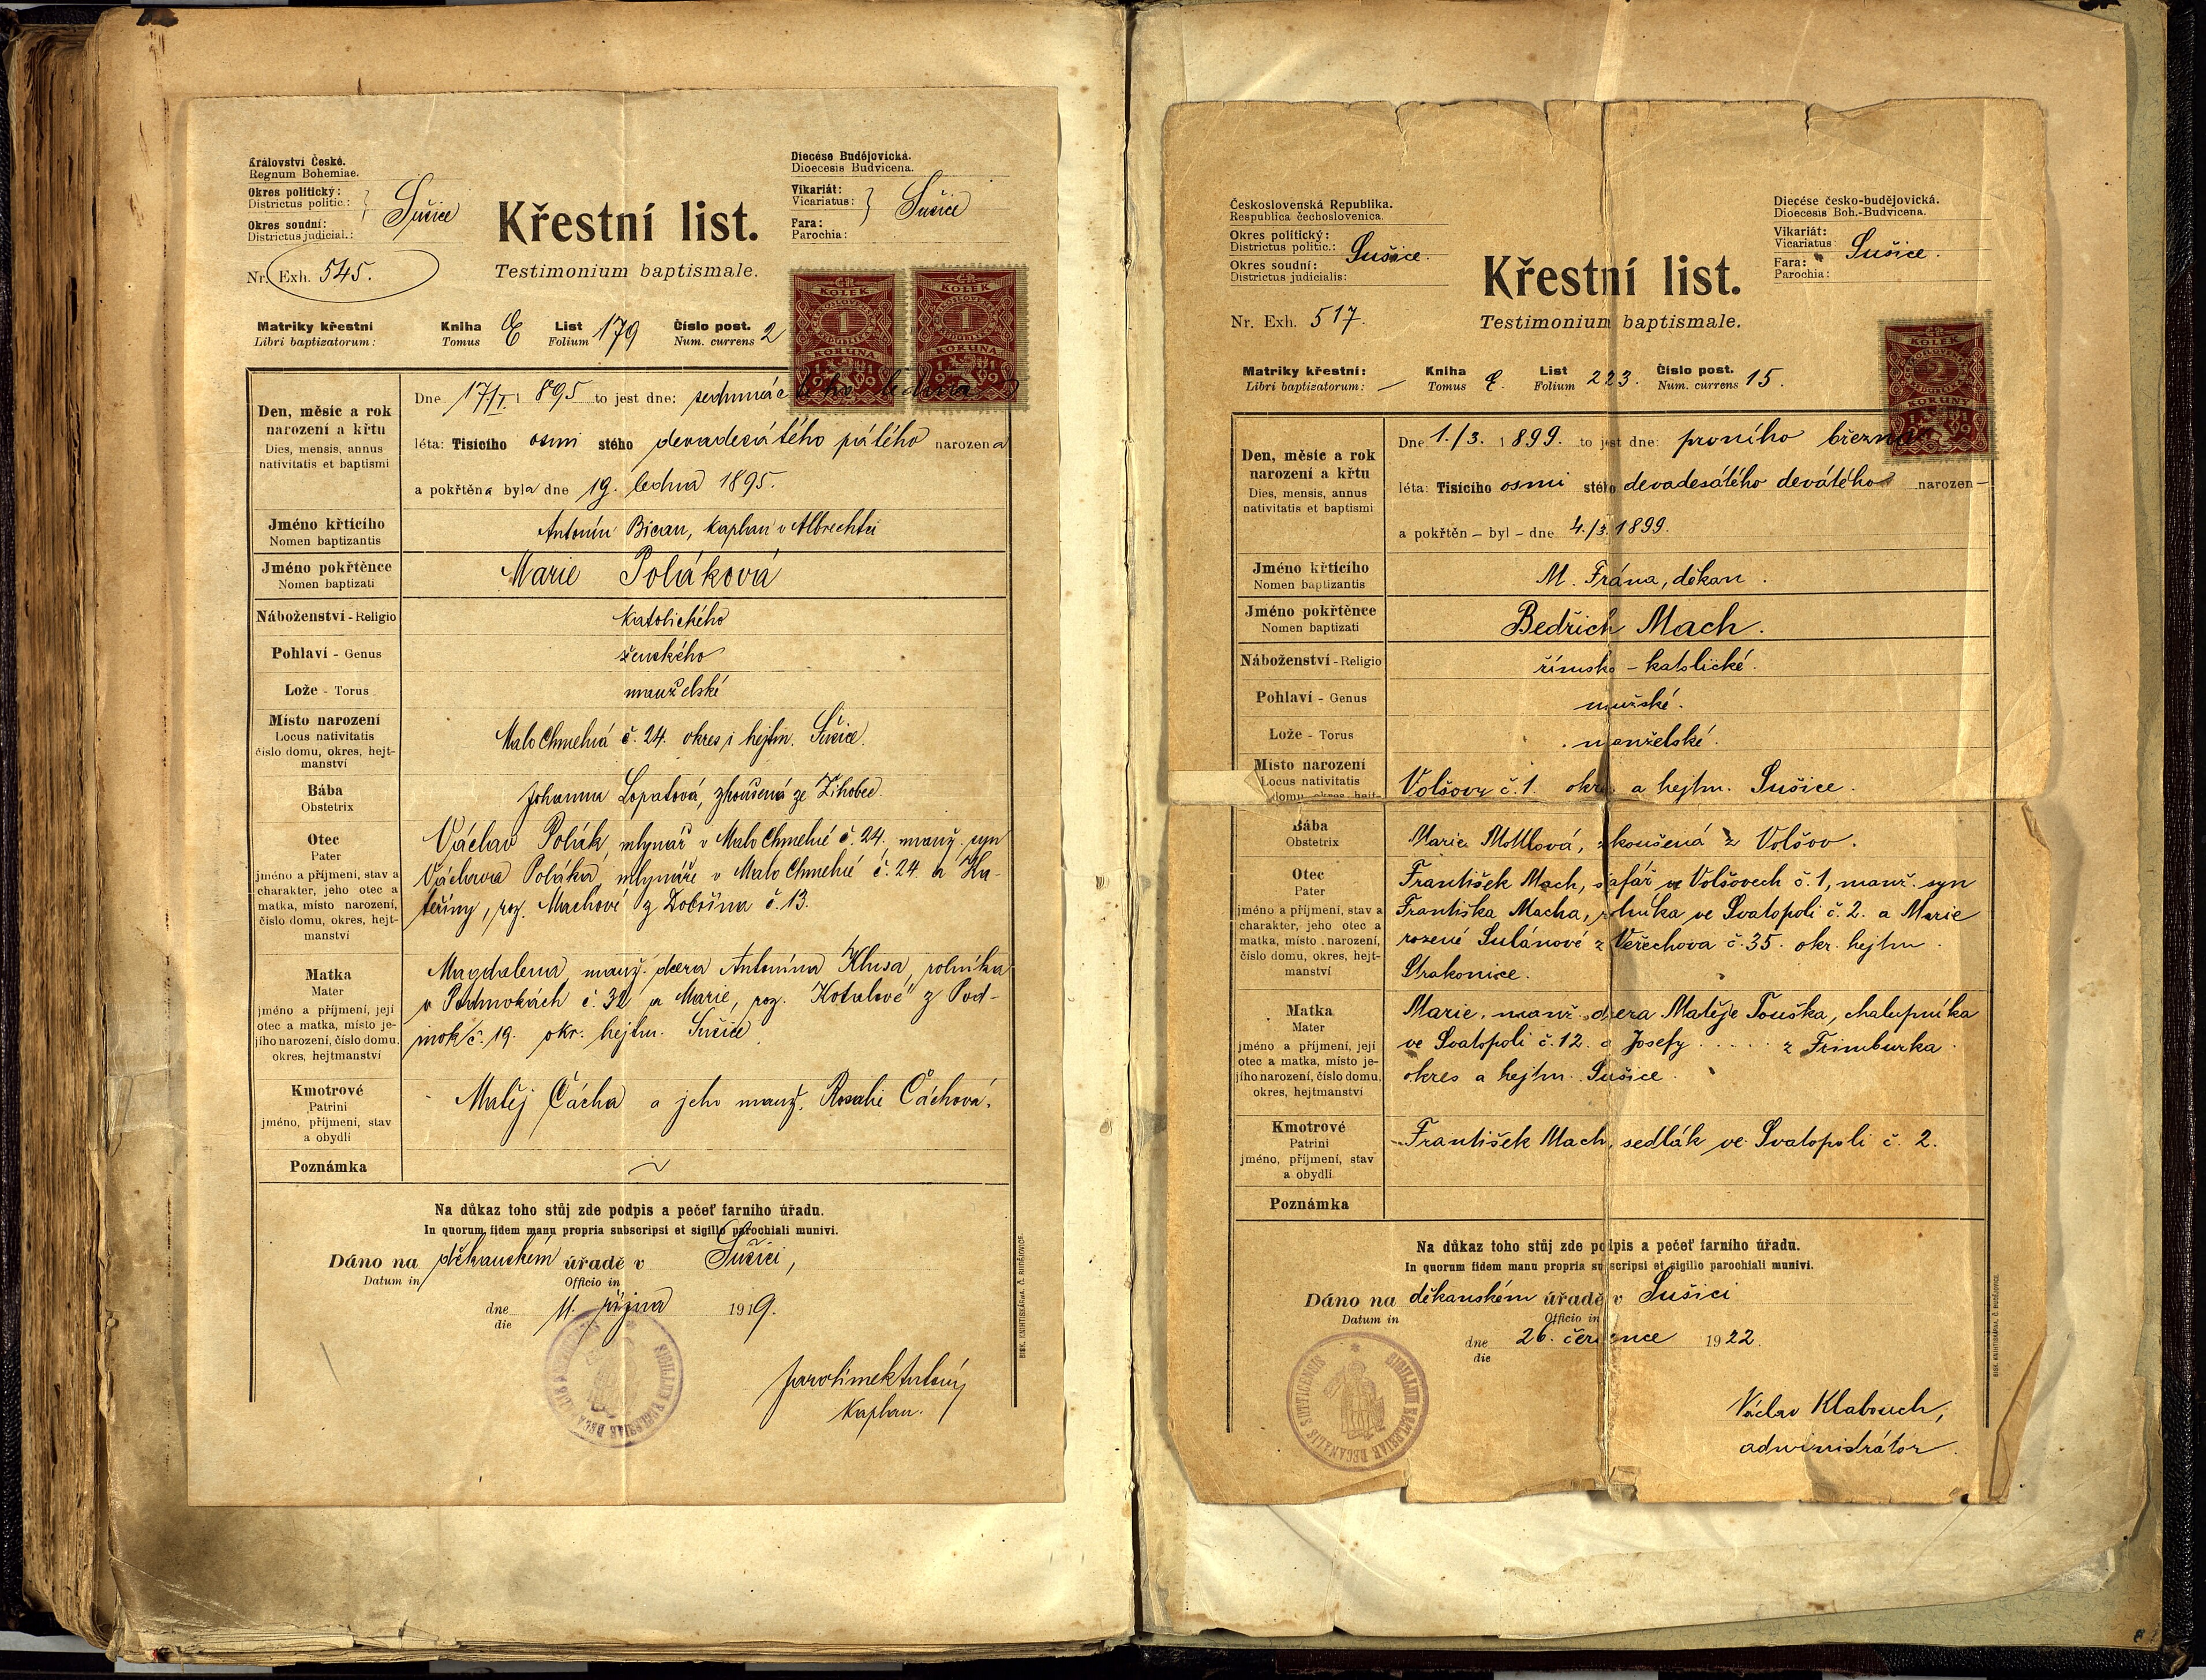 Království České.
Regnum Bohemiae.
Okres politický:
Districtus politic.:
Sušice
Okres soudní:
Districtus judicial.:
Nr. Exh. 545.
Diecése Budějovická.
Dioecesis Budvicena.
Vikariát:
Vicariatus:
Sušice
Fara:
Parochia:
Křestní list.
Testimonium baptismale.
KOLEK
1
KORUNA
KOLEK
1
KORUNA
Matriky křestní Kniha E List 179 Číslo post. 2
Libri baptizatorum: Tomus Folium Num. currens
Den, měsíc a rok
narození a křtu
Dies, mensis, annus
nativitatis et baptismi
Dne 17/I. 1895 to jest dne: sedmnáctého ledna
léta: Tisícího osmi stého devadesátého pátého narozena
a pokřtěna byla dne 19. ledna 1895.
Jméno křtícího
Nomen baptizantis
Antonín Bican, kaplan v Albrechtci
Jméno pokřtěnce
Nomen baptizati
Marie Poláková
Náboženství - Religio
katolického
Pohlaví - Genus
ženského
Lože - Torus
manželské
Místo narození
Locus nativitatis
číslo domu, okres, hejt-
manství
Malo Chmelná č. 24. okres i hejtm. Sušice.
Bába
Obstetrix
Johanna Lopatová, zkoušená ze Žihobec.
Otec
Pater
jméno a příjmení, stav a
charakter, jeho otec a
matka, místo narození,
číslo domu, okres, hejt-
manství
Václav Polák, mlynář v Malo Chmelné č. 24. manž. syn
Václava Poláka, mlynáře v Malo Chmelné č. 24 a Ka-
teřiny, roz. Machové z Dobršína č. 13.
Matka
Mater
jméno a příjmení, její
otec a matka, místo je-
jího narození, číslo domu,
okres, hejtmanství
Magdalena, manž. dcera Antonína Klusa, rolníka
v Podmokách č. 32 a Marie, roz. Kotalové z Pod-
mok č. 19. okr. hejtm. Sušice.
Kmotrové
Patrini
jméno, příjmení, stav
a obydlí
Matěj Čácha a jeho manž. Rosalie Čáchová.
Poznámka
Na důkaz toho stůj zde podpis a pečeť farního úřadu.
In quorum fidem manu propria subscripsi et sigillo parochiali munivi.
Dáno na děkanském úřadě v Sušici,
Datum in Officio in
dne 11. října 1919.
die
SIGILLUM ECCLESIAE
Jarolímek Antonín
kaplan.
BISK. KNIHTISKÁRNA, Č. BUDĚJOVICE.
Československá Republika.
Respublica čechoslovenica.
Okres politický:
Districtus politic.:
Sušice.
Okres soudní:
Districtus judicialis:
Nr. Exh. 517.
Diecése česko-budějovická.
Dioecesis Boh.-Budvicena.
Vikariát:
Vicariatus:
Sušice.
Fara:
Parochia:
Křestní list.
Testimonium baptismale.
KOLEK
2
KORUNY
Matriky křestní: Kniha E. List 223. Číslo post. 15.
Libri baptizatorum: Tomus Folium Num. currens
Den, měsíc a rok
narození a křtu
Dies, mensis, annus
nativitatis et baptismi
Dne 1./3. 1899. to jest dne: prvního března
léta: Tisícího osmi stého devadesátého devátého narozen -
a pokřtěn - byl - dne 4./3. 1899.
Jméno křtícího
Nomen baptizantis
M. Frána, děkan.
Jméno pokřtěnce
Nomen baptizati
Bedřich Mach.
Náboženství - Religio
římsko - katolické.
Pohlaví - Genus
mužské.
Lože - Torus
manželské.
Místo narození
Locus nativitatis
domu, okres, hejt-
Volšovy č. 1. okres a hejtm. Sušice.
Bába
Obstetrix
Marie Mottlová, zkoušená z Volšov.
Otec
Pater
jméno a příjmení, stav a
charakter, jeho otec a
matka, místo narození,
číslo domu, okres, hejt-
manství
František Mach, šafář ve Volšovech č. 1, manž. syn
Františka Macha, rolníka ve Svatopoli č. 2. a Marie
rozené Sulánové z Veřechova č. 35. okr. hejtm.
Strakonice.
Matka
Mater
jméno a příjmení, její
otec a matka, místo je-
jího narození, číslo domu,
okres, hejtmanství
Marie, manž. dcera Matěje Touška, chalupníka
ve Svatopoli č. 12. a Josefy . . . . . z Frimburka
okres a hejtm. Sušice.
Kmotrové
Patrini
jméno, příjmení, stav
a obydlí
František Mach, sedlák ve Svatopoli č. 2.
Poznámka
Na důkaz toho stůj zde podpis a pečeť farního úřadu.
In quorum fidem manu propria subscripsi et sigillo parochiali munivi.
Dáno na děkanském úřadě v Sušici
Datum in Officio in
dne 26. července 1922.
die
SIGILLUM ECCLESIAE DECANALIS SUTTICENSIS
Václav Klabouch,
administrátor.
BISK. KNIHTISKÁRNA, Č. BUDĚJOVICE.